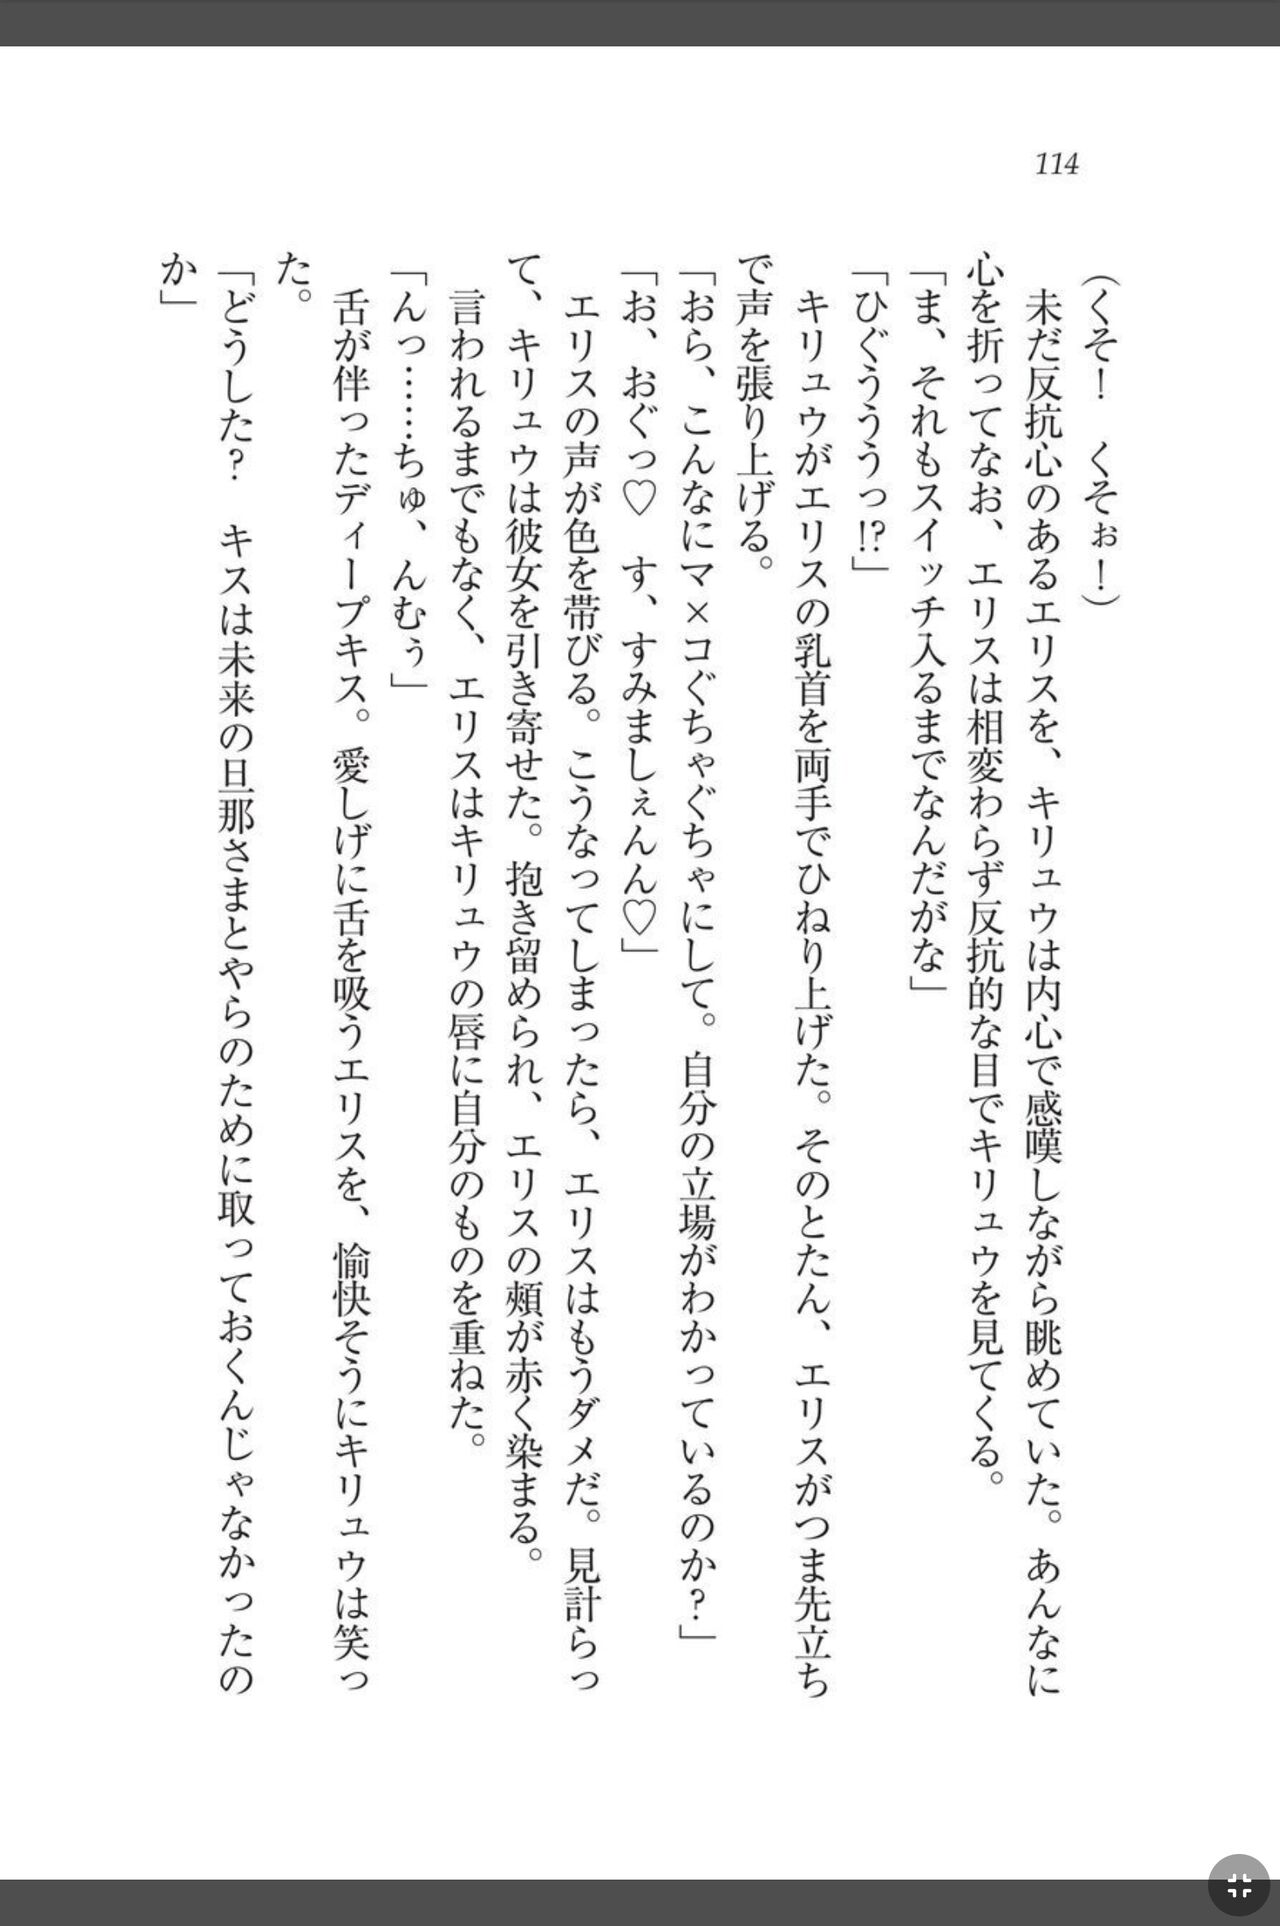 114
（くそ！　くそぉ！）
　未だ反抗心のあるエリスを、キリュウは内心で感嘆しながら眺めていた。あんなに
心を折ってなお、エリスは相変わらず反抗的な目でキリュウを見てくる。
「ま、それもスイッチ入るまでなんだがな」
「ひぐぅううっ!?」
　キリュウがエリスの乳首を両手でひねり上げた。そのとたん、エリスがつま先立ち
で声を張り上げる。
「おら、こんなにマ×コぐちゃぐちゃにして。自分の立場がわかっているのか？」
「お、おぐっ♡　す、すみましぇんん♡」
　エリスの声が色を帯びる。こうなってしまったら、エリスはもうダメだ。見計らっ
て、キリュウは彼女を引き寄せた。抱き留められ、エリスの頰が赤く染まる。
　言われるまでもなく、エリスはキリュウの唇に自分のものを重ねた。
「んっ……ちゅ、んむぅ」
　舌が伴ったディープキス。愛しげに舌を吸うエリスを、愉快そうにキリュウは笑っ
た。
「どうした？　キスは未来の旦那さまとやらのために取っておくんじゃなかったの
か」